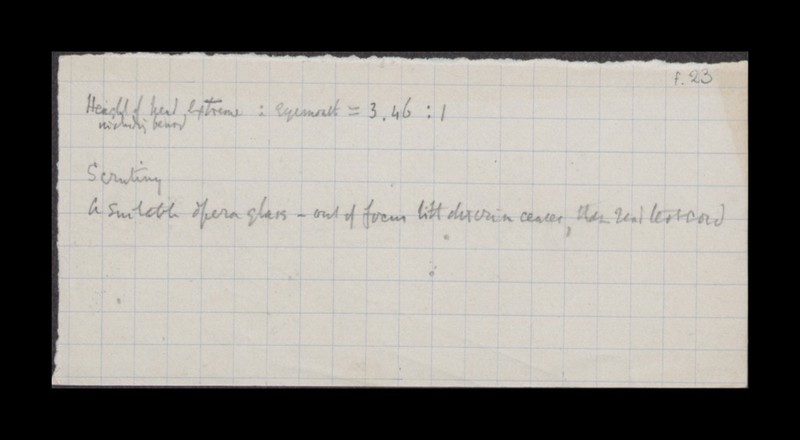 f. 23
Height of head extreme : eyemouth = 3.46 : 1
including beard
Scrutiny
A suitable opera glass – out of focus till discrimn ceases, then read test card